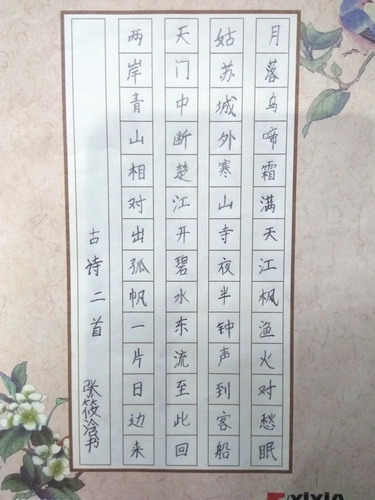 月落乌啼霜满天江枫渔火对愁眠
姑苏城外寒山寺夜半钟声到客船
天门中断楚江开碧水东流至此回
两岸青山相对出孤帆一片日边来
古诗二首
张筱涵书